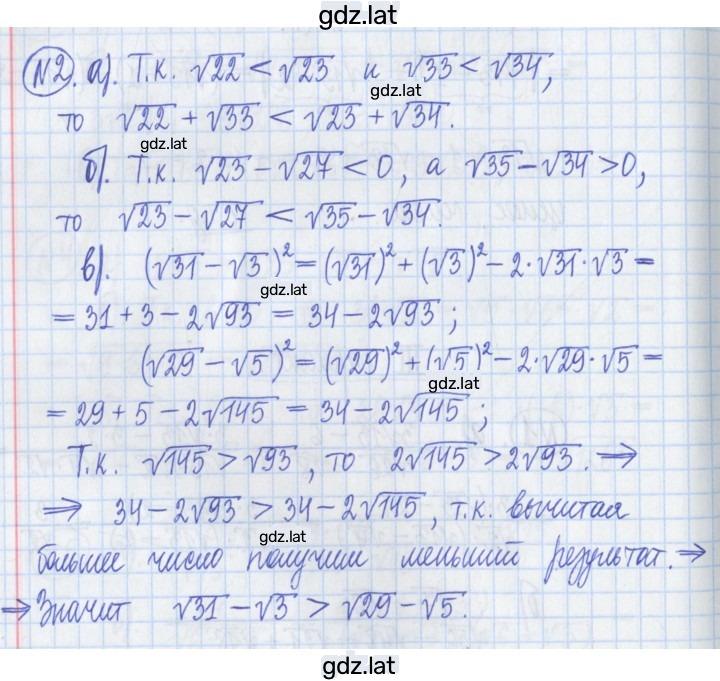 gdz.lat
№2. а). Т.к. √22 < √23 и √33 < √34,
gdz.lat
то √22 + √33 < √23 + √34.
gdz.lat
б). Т.к. √23 - √27 < 0, а √35 - √34 > 0,
то √23 - √27 < √35 - √34.
в). (√31 - √3)² = (√31)² + (√3)² - 2·√31·√3 =
gdz.lat
= 31 + 3 - 2√93 = 34 - 2√93;
(√29 - √5)² = (√29)² + (√5)² - 2·√29·√5 =
gdz.lat
= 29 + 5 - 2√145 = 34 - 2√145;
Т.к. √145 > √93, то 2√145 > 2√93. ⇒
⇒ 34 - 2√93 > 34 - 2√145, т.к. вычитая
gdz.lat
большее число получим меньший результат. ⇒
⇒ Значит √31 - √3 > √29 - √5.
gdz.lat